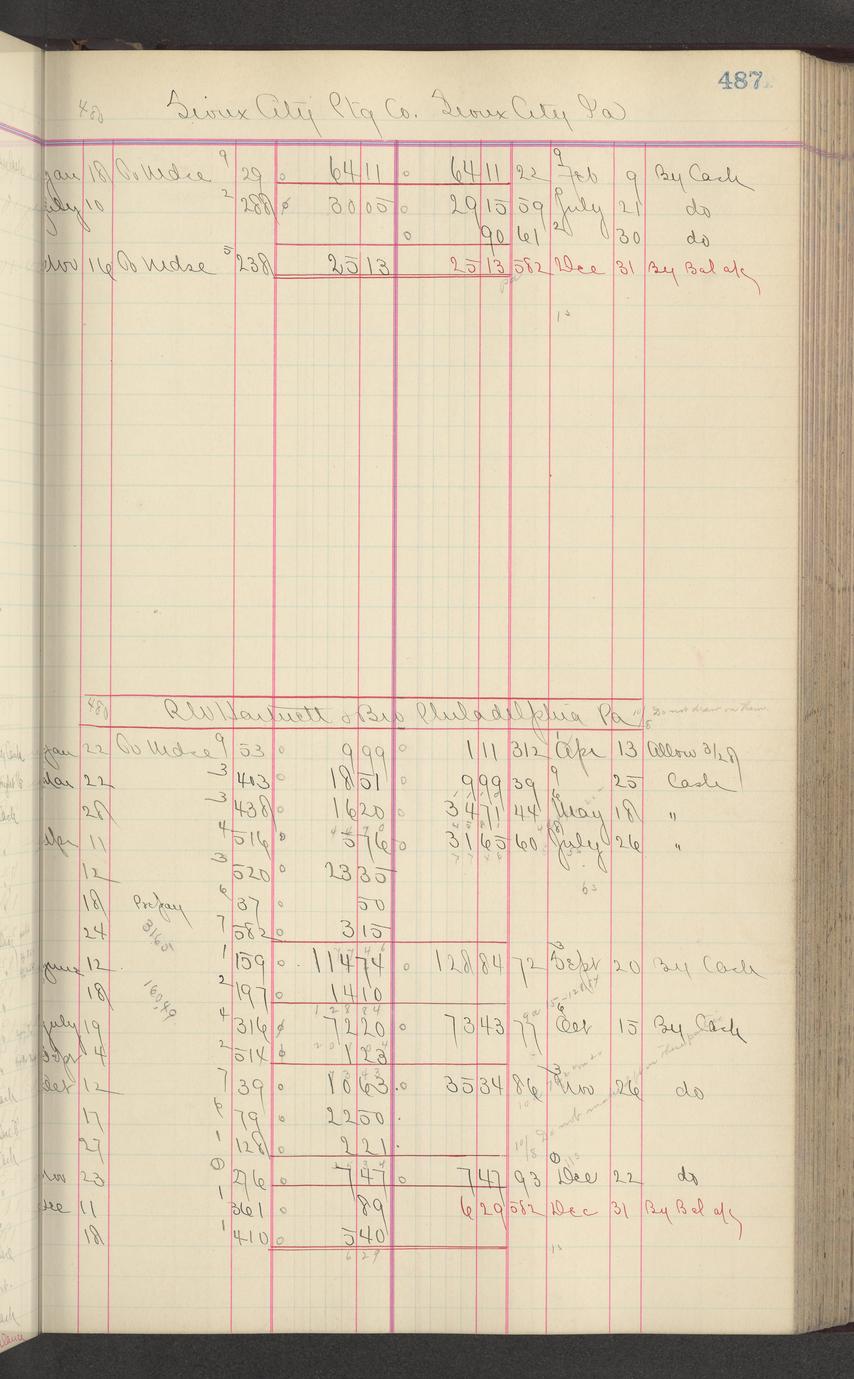 487
480 Sioux City Ptg Co. Sioux City Ia
Jan 18 To Mdse 9 29 64 11 64 11 22 9 Feb 9 By Cash
July 10 2 288 30 05 29 15 59 July 21 do
90 61 2 30 do
Nov 16 To Mdse 5 238 25 13 25 13 582 Dec 31 By Bal a/c
480 R W Hartnett & Bro Philadelphia Pa 10/8 Do not draw on them
Jan 22 To Mdse 9 53 9 99 1 11 312 Apr 13 Allow 3/28
Mar 22 3 403 18 51 9 99 39 9 25 Cash
28 3 438 16 20 34 71 44 May 18 "
Apr 11 4 516 5 76 31 65 60 July 26 "
12 3 520 23 35
18 Prepay 6 37 50
24 7 582 3 15
June 12 1 159 114 74 128 84 72 3 Sept 20 By Cash
18 2 197 14 10
July 19 4 316 72 20 73 43 77 6 Oct 15 By Cash
Sept 4 2 514 1 23
Oct 12 7 39 10 63 35 34 86 3 Nov 26 do
17 6 79 22 50
27 1 128 2 21
Nov 23 276 7 47 7 47 93 Dec 22 do
Dec 11 1 361 89 6 29 582 Dec 31 By Bal a/c
18 1 410 5 40
6 29